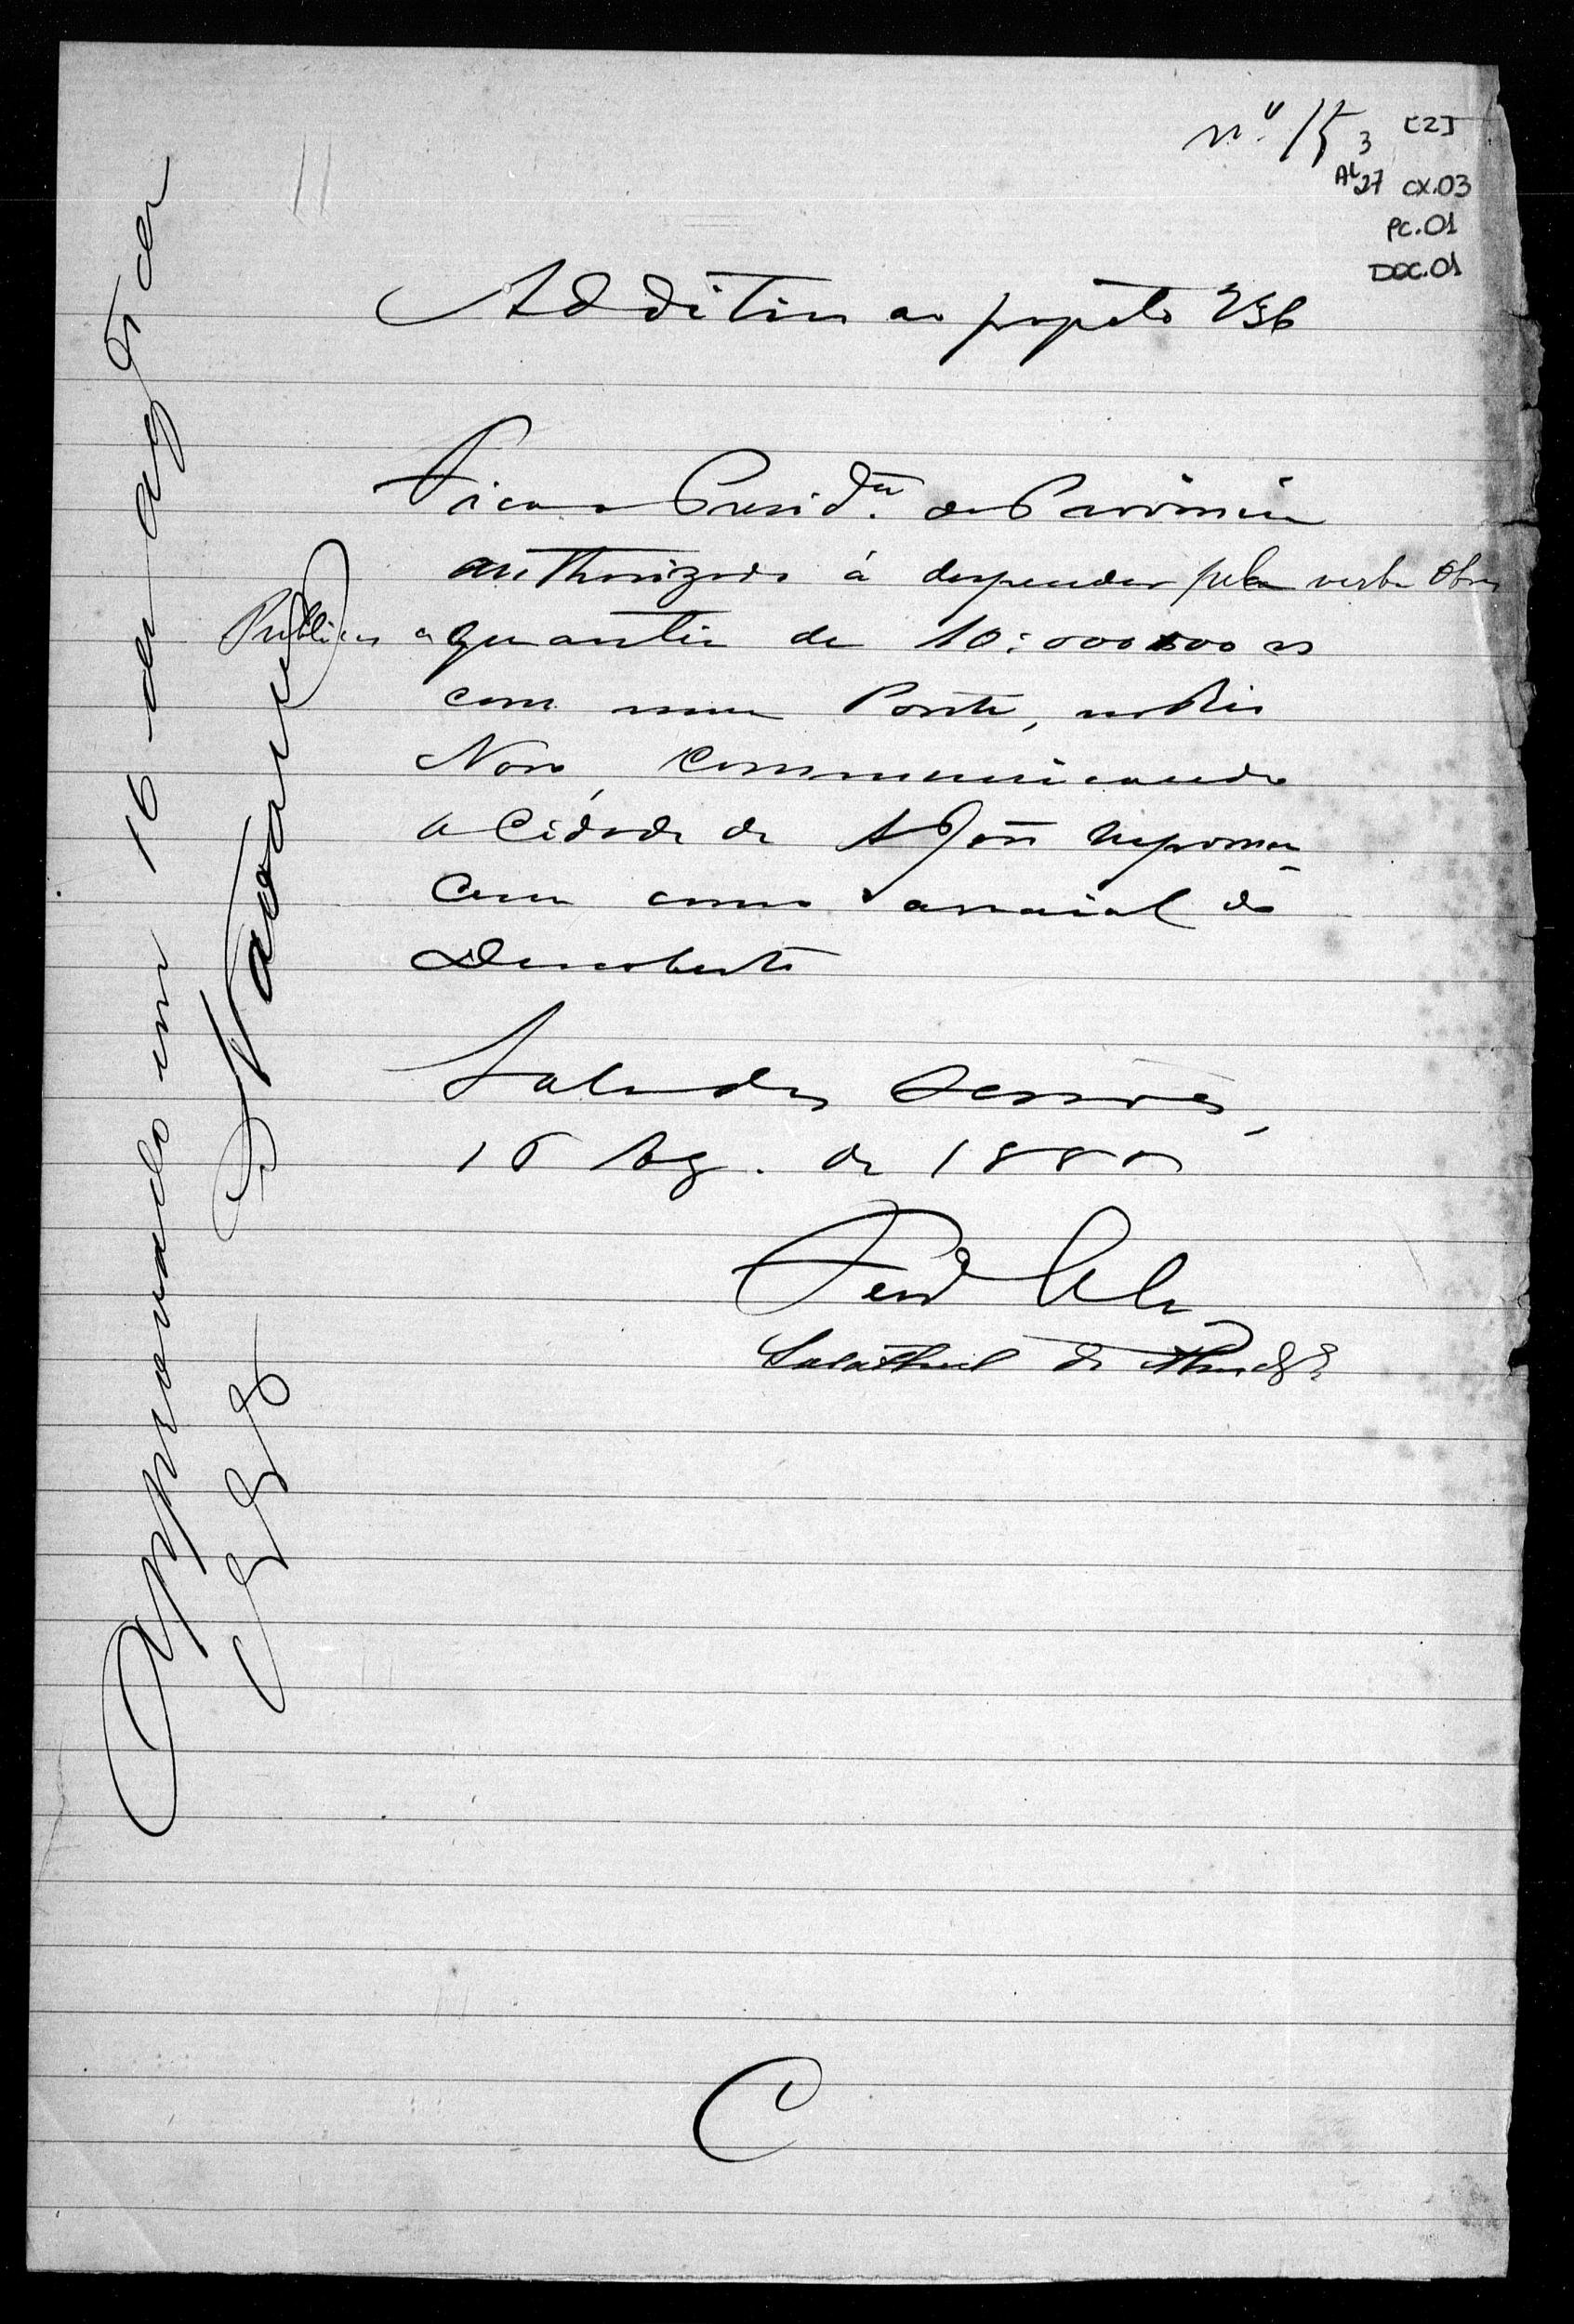 nº 15
3 [2]
AL 27 CX.03
PC.01
DOC.01
Additivo ao projecto 236
Fica o Presid.te da Provincia
authorizado á despender pela verba Obras
Publicas a quantia de 10:000$000 rs
com uma Ponte, no Rio
Novo, communicando
a Cidade de S João Nepomu-
ceno com o arraial do
Descoberto
Sala das Sessões,
16 Ag. de 1880
Ferd
Salathiel de Almdª
Approvado em 16 de agosto de
1880
Navarro
C